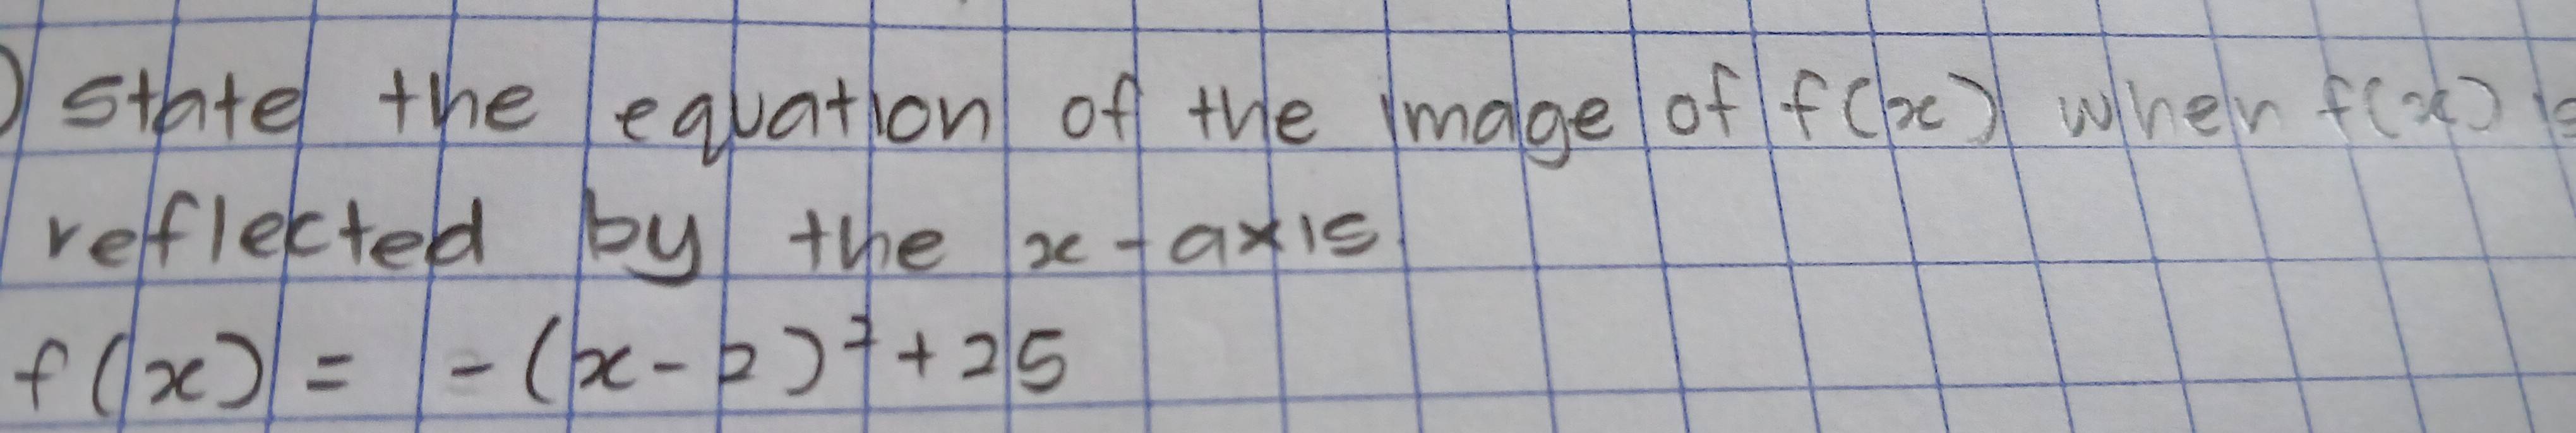 ) state the equation of the image of f(x) when f(x) is
reflected by the x-axis
f(x) = -(x-2)²+25